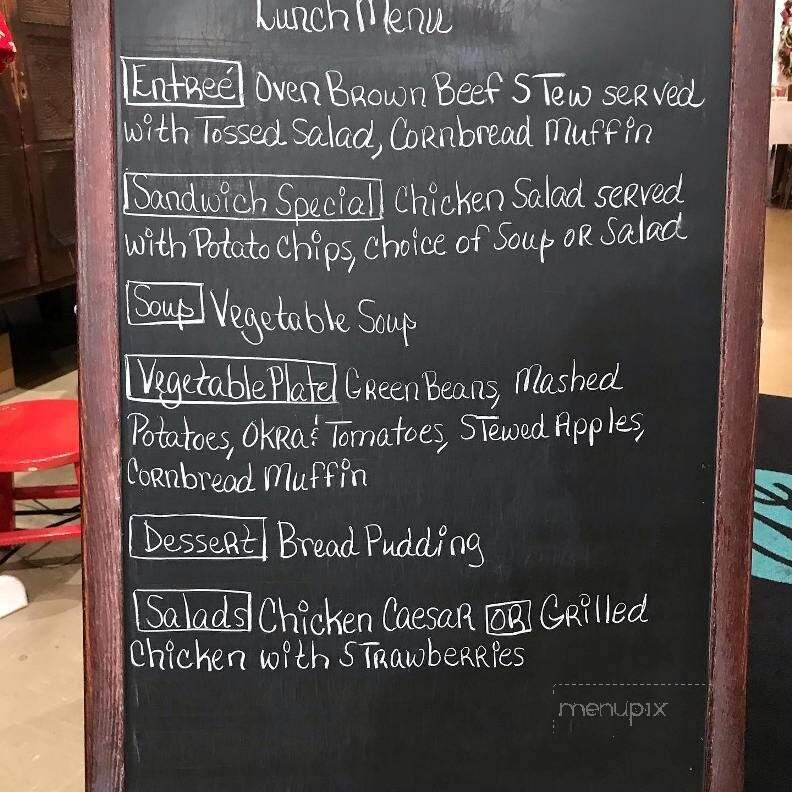 Lunch Menu
Entreé Oven Brown Beef Stew served
with Tossed Salad, Cornbread Muffin
Sandwich Special Chicken Salad served
with Potato Chips, choice of Soup or Salad
Soup Vegetable Soup
Vegetable Plate Green Beans, Mashed
Potatoes, Okra & Tomatoes, Stewed Apples,
Cornbread Muffin
Dessert Bread Pudding
Salads Chicken Caesar OR Grilled
Chicken with Strawberries
menupix